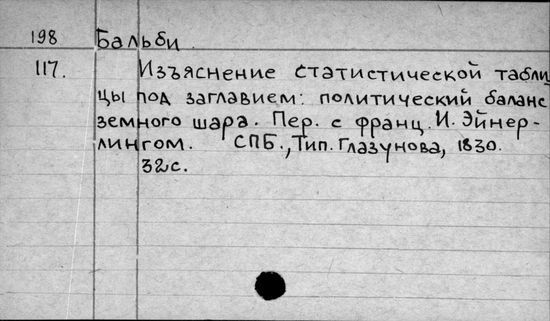 198 Бальби
117. Изъяснение статистической табли
цы под заглавием: политический баланс
земного шара. Пер. с франц. И. Эйнер-
лингом. СПБ., Тип. Глазунова, 1830.
32с.